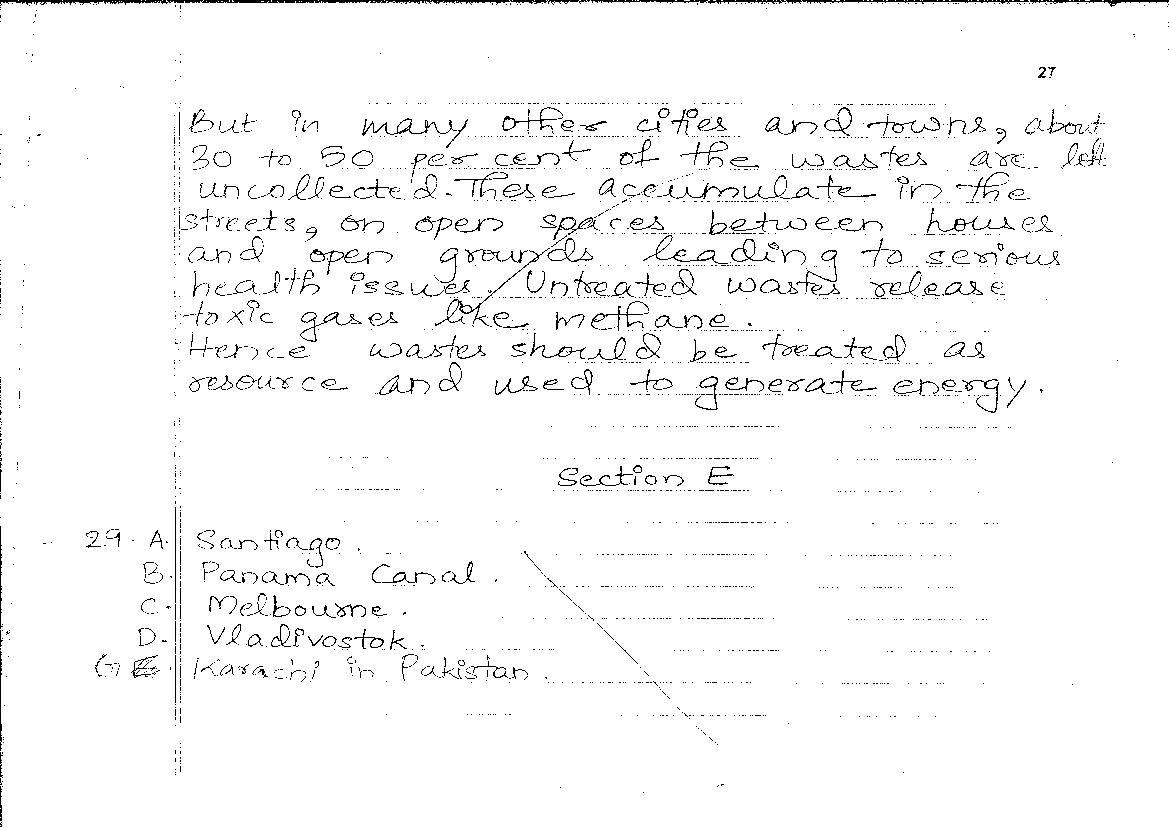 27
But in many other cities and towns, about
30 to 50 per cent of the wastes are left
uncollected. These accumulate in the
streets, on open spaces between houses
and open grounds leading to serious
health issues. Untreated wastes release
toxic gases like methane.
Hence wastes should be treated as
resource and used to generate energy.
Section E
29. A. Santiago.
B. Panama Canal.
C. Melbourne.
D. Vladivostok.
Karachi in Pakistan.